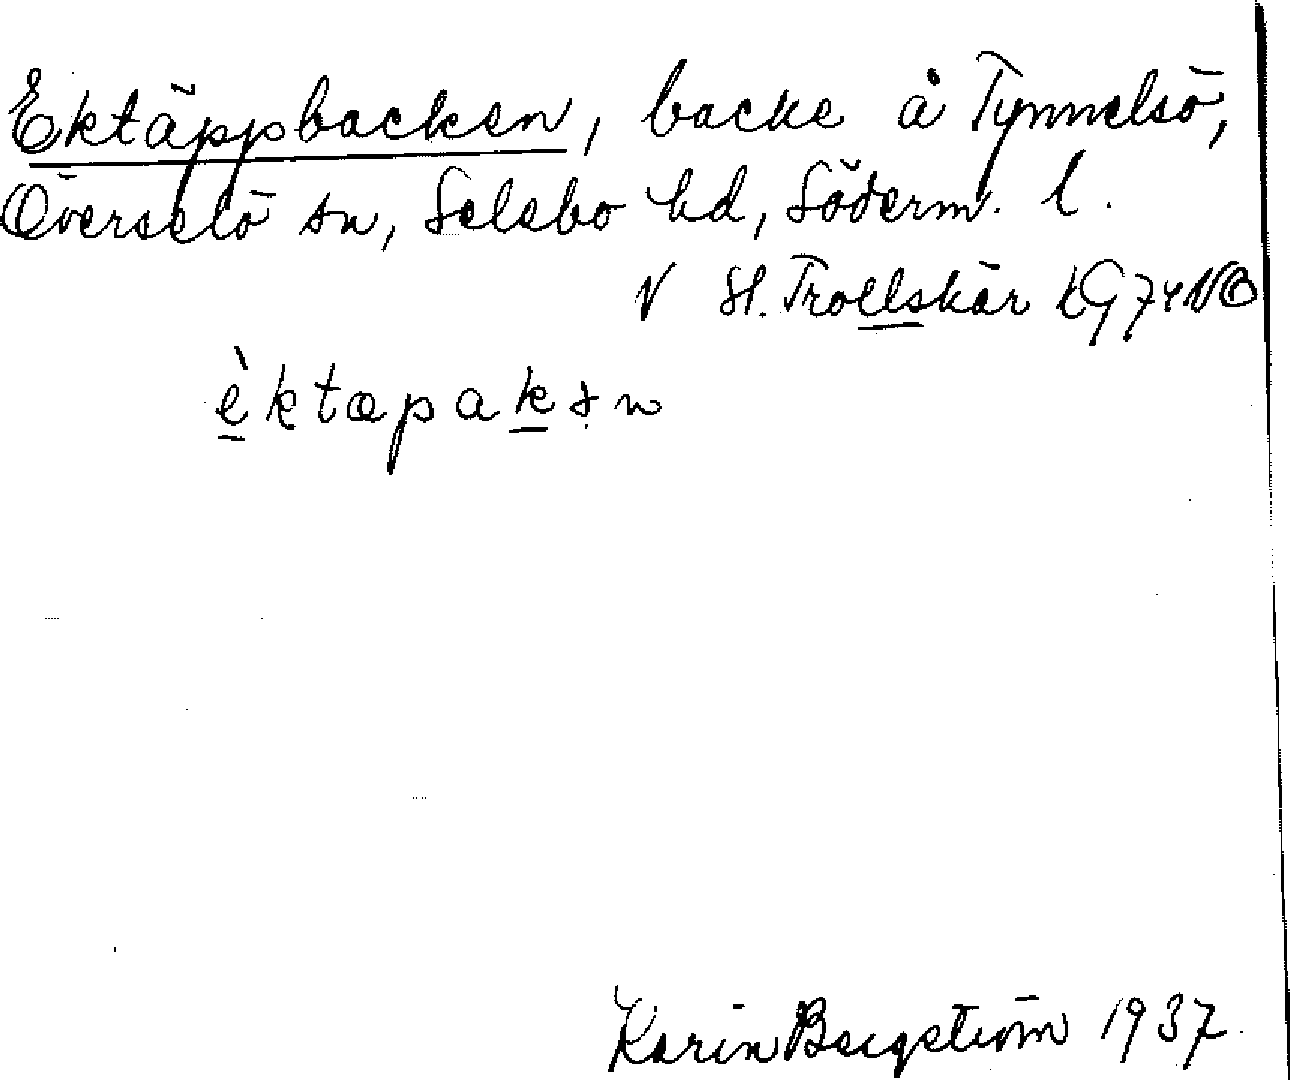 Ektäppbacken, backe å Tynnelsö,
Överselö sn, Selebo hd, Söderm. l.
N St. Trollskär kG 74 NO
èktapakən
Karin Bergström 1937.